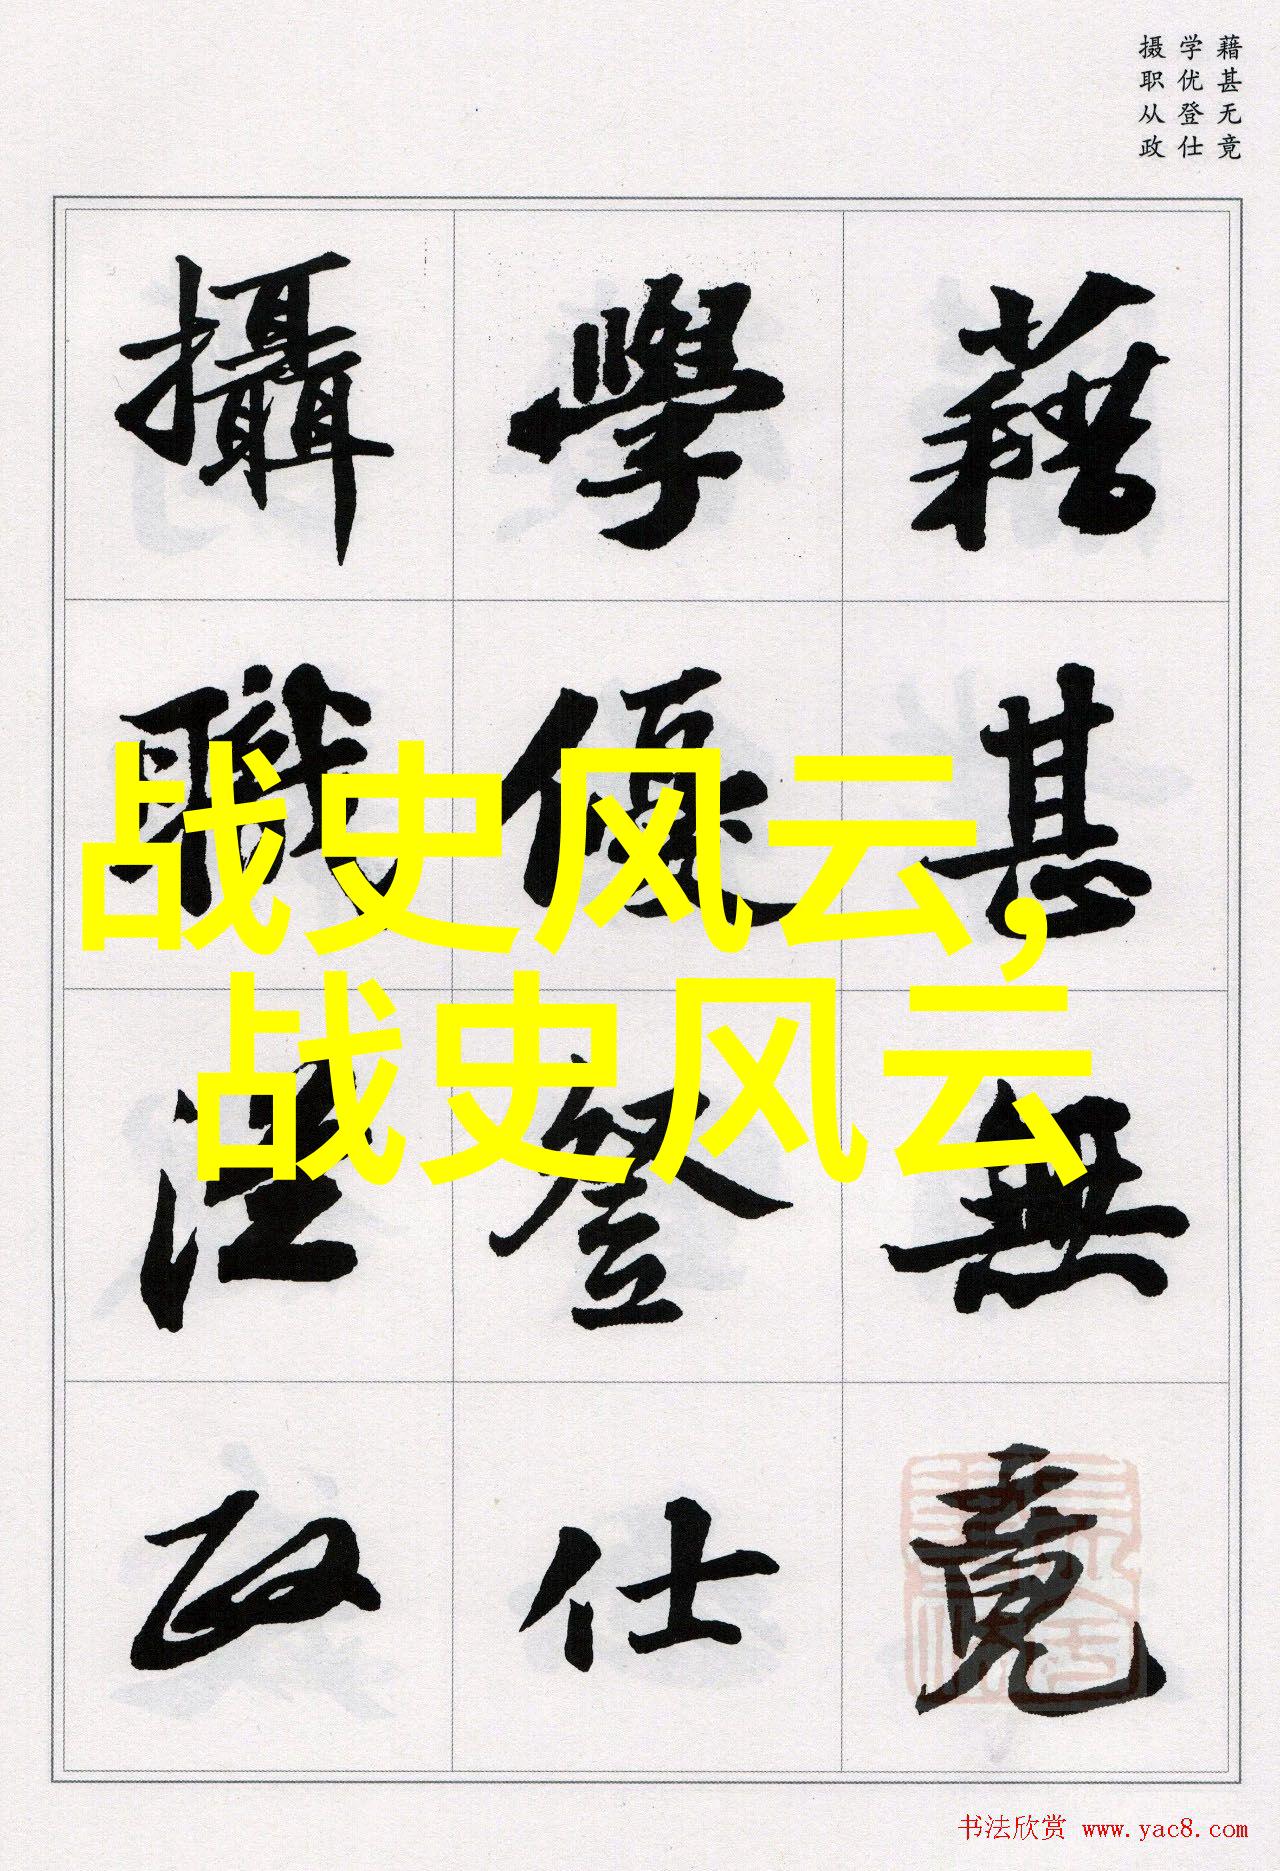 藉甚无竟
学优登仕
摄职从政
藉甚無竟
學優登仕
攝職從政
战史风云，
战史风云
书法欣赏 www.yac8.com